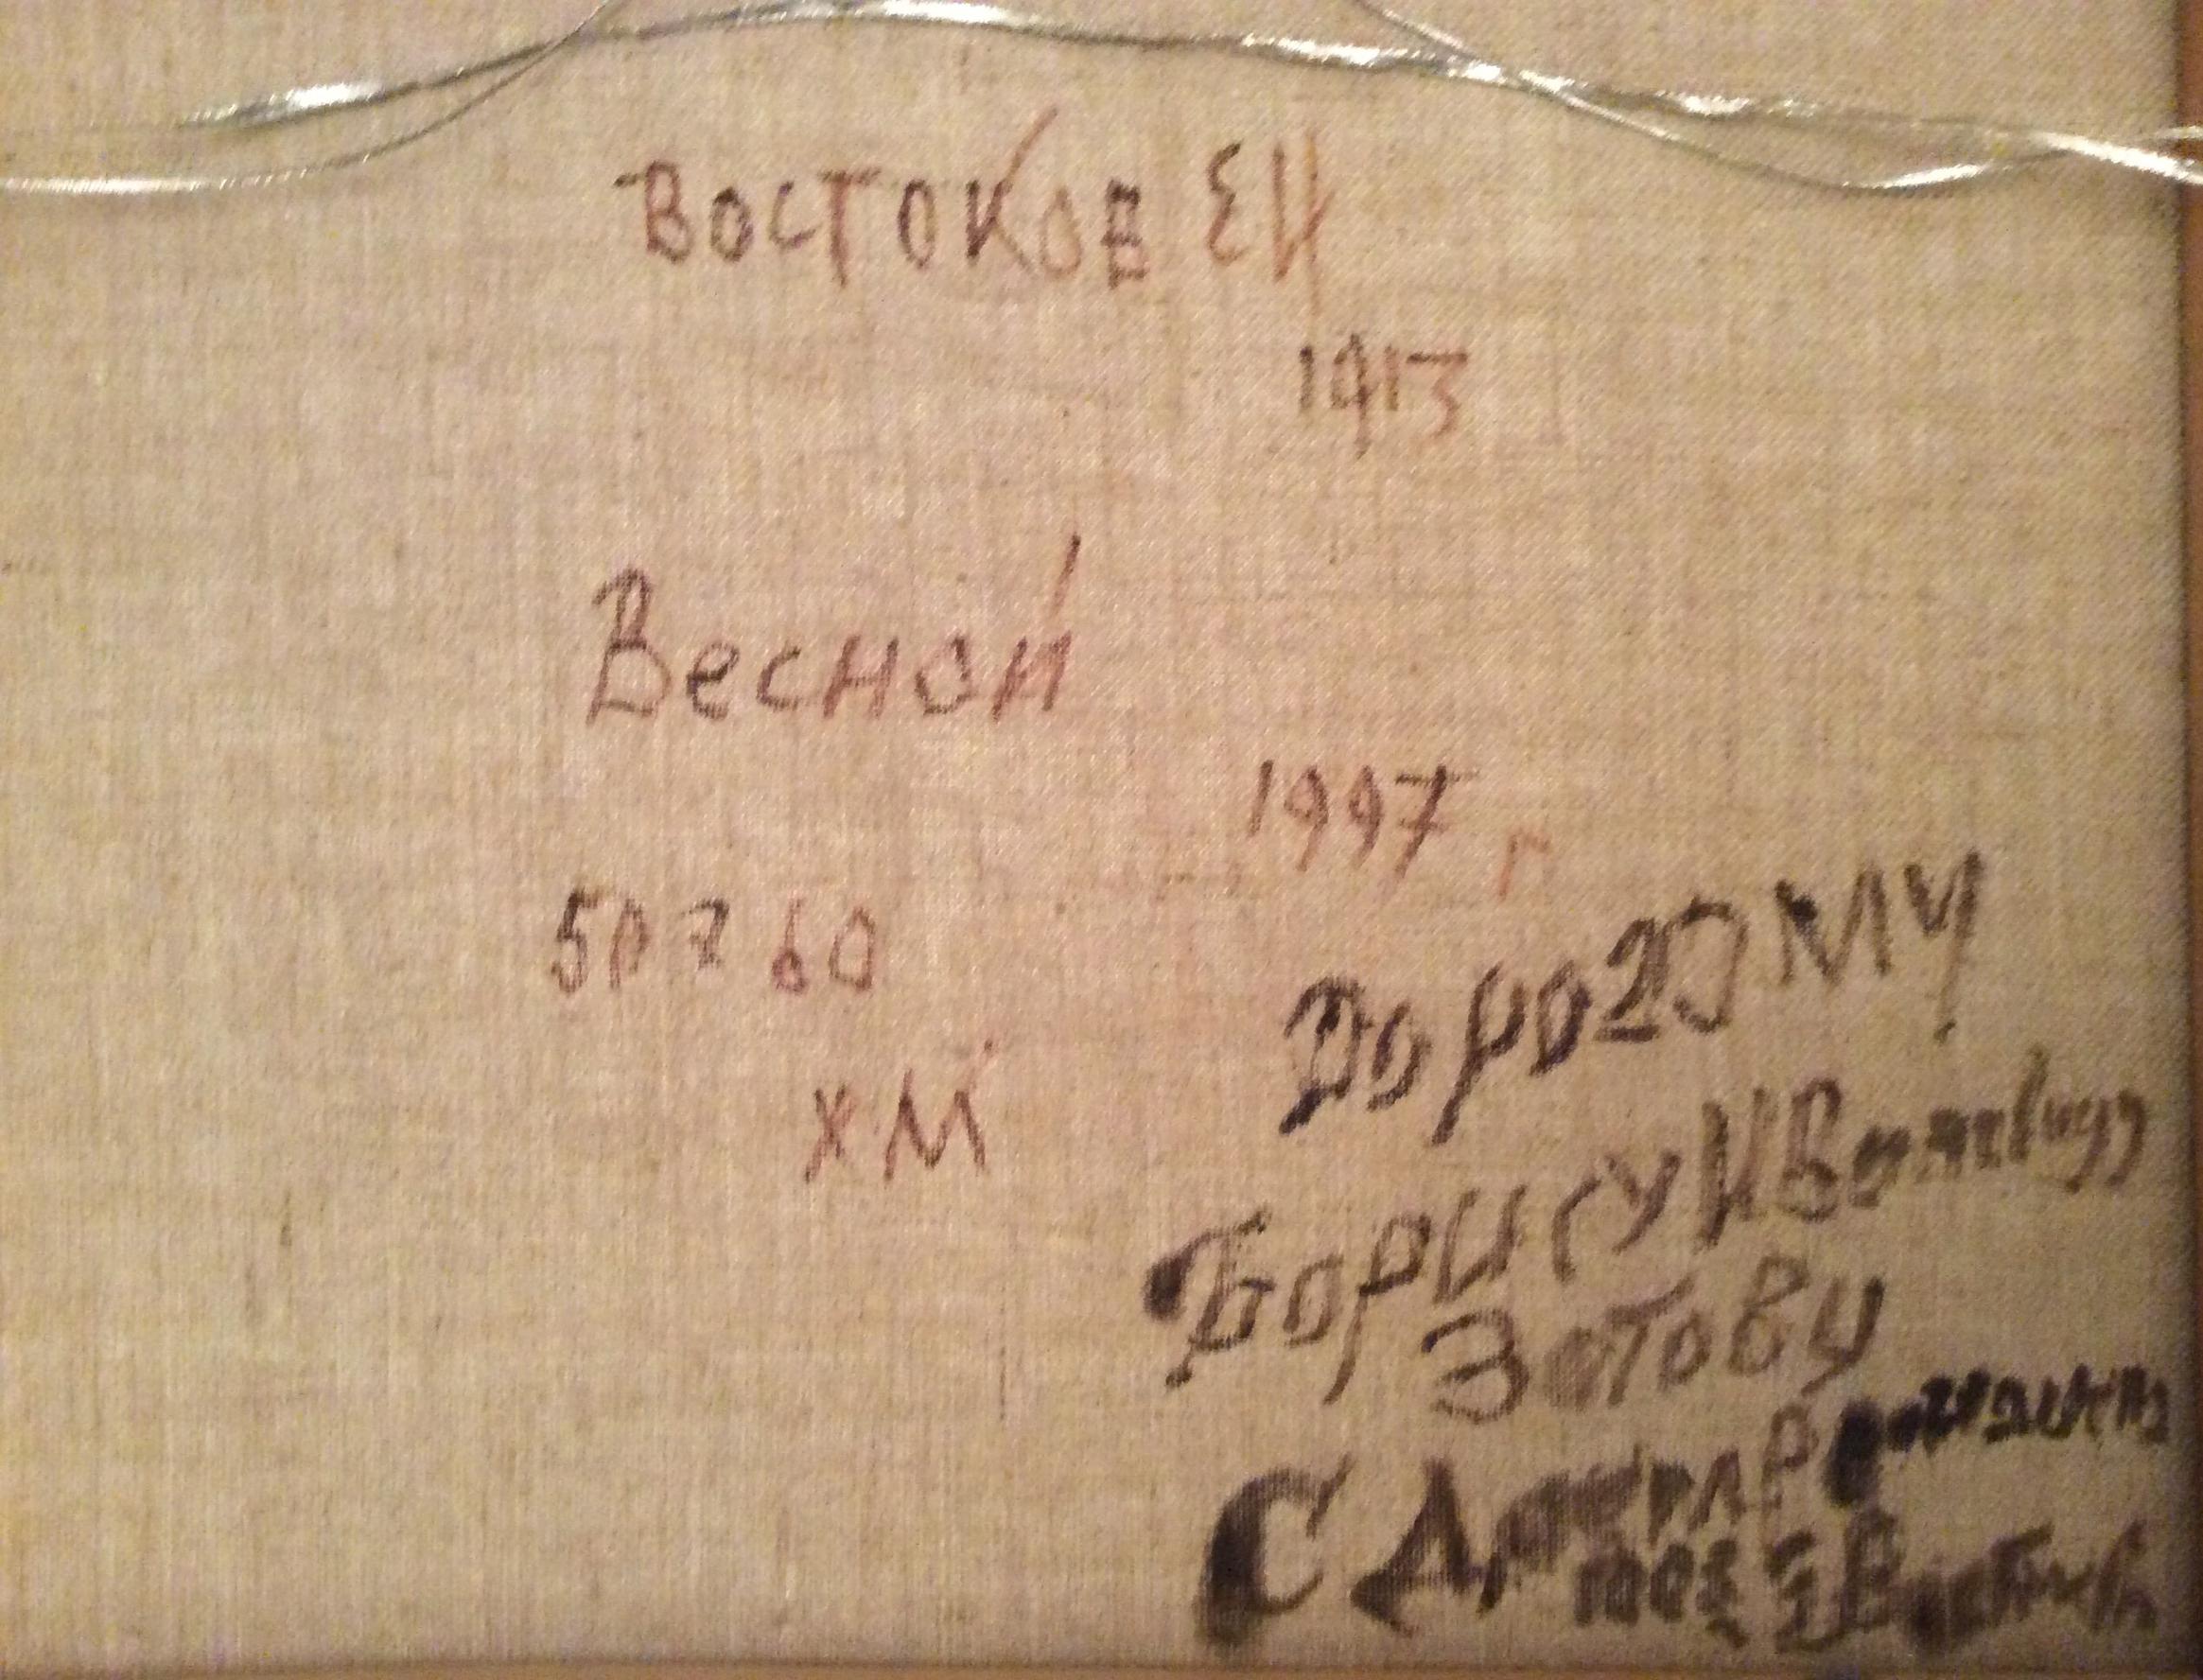 ВОСТОКОВ ЕН
1913
Весной
1997 г
50 х 60
ХМ
Дорогому
Борису Ивановичу
Зотову
С Днем Рождения
Востоков